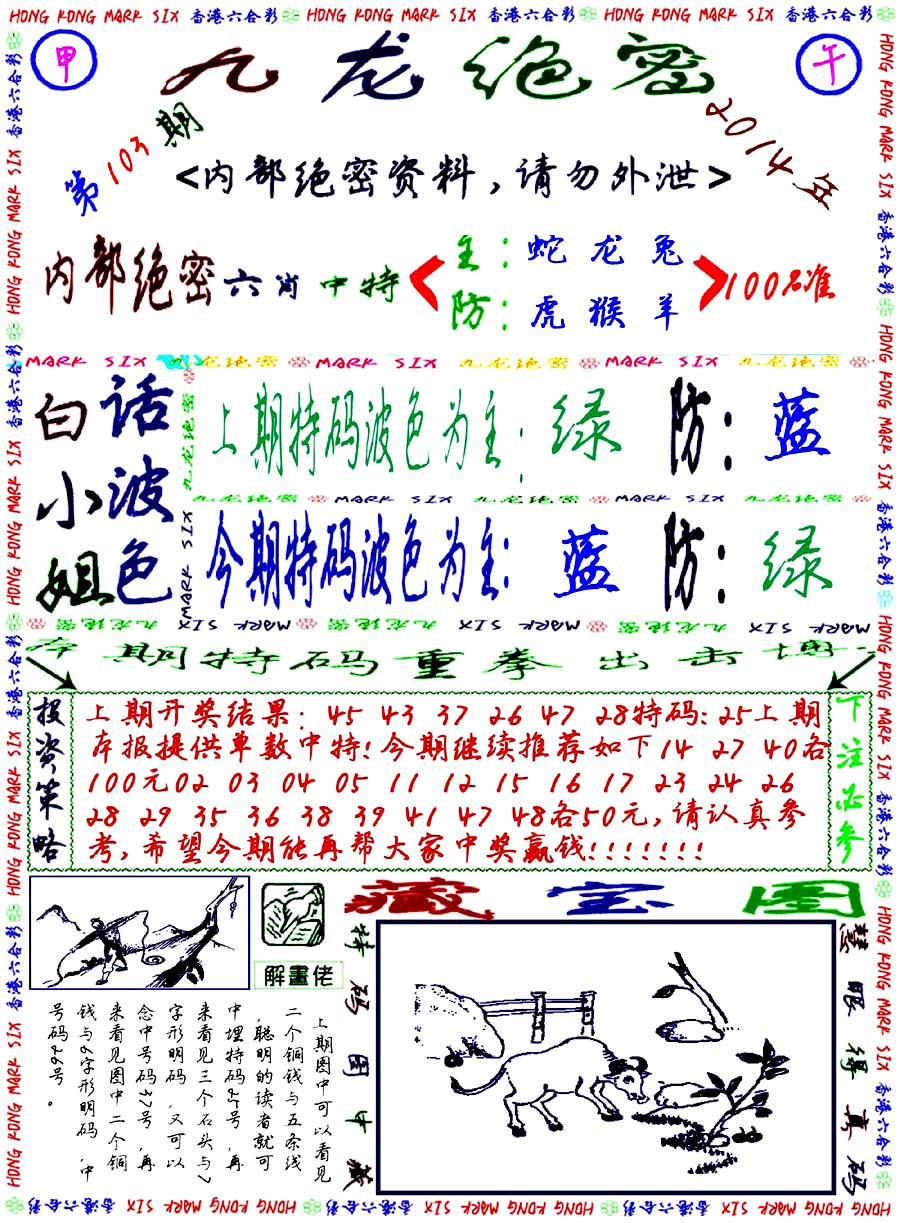 HONG KONG MARK SIX 香港六合彩 HONG KONG MARK SIX 香港六合彩 HONG KONG MARK SIX 香港六合彩
甲
九龙绝密
午
第103期
2014年
<内部绝密资料,请勿外泄>
内部绝密六肖中特
主:蛇龙兔
防:虎猴羊
100%准
MARK SIX 九龙绝密 MARK SIX 九龙绝密 MARK SIX 九龙绝密
白话小波姐色
上期特码波色为主:绿 防:蓝
九龙绝密 MARK SIX 九龙绝密 MARK SIX 九龙绝密
今期特码波色为主:蓝 防:绿
MARK SIX 九龙绝密 MARK SIX 九龙绝密 MARK SIX 九龙绝密
本期特码重拳出击博
投资策略
上期开奖结果:45 43 37 26 47 28特码:25上期
本报提供单数中特!今期继续推荐如下14 27 40各
100元02 03 04 05 11 12 15 16 17 23 24 26
28 29 35 36 38 39 41 47 48各50元,请认真参
考,希望今期能再帮大家中奖赢钱!!!!!!!
下注必参
解畫佬
藏宝图
特码图中藏
慧眼得真码
上期图中可以看见
二个铜钱与五条线
,聪明的读者就可
中埋特码25号,再
来看见三个石头与7
字形明码,又可以
念中号码37号,再
来看见图中二个铜
钱与6字形明码,中
号码26号。
HONG KONG MARK SIX 香港六合彩 HONG KONG MARK SIX 香港六合彩 HONG KONG MARK SIX 香港六合彩